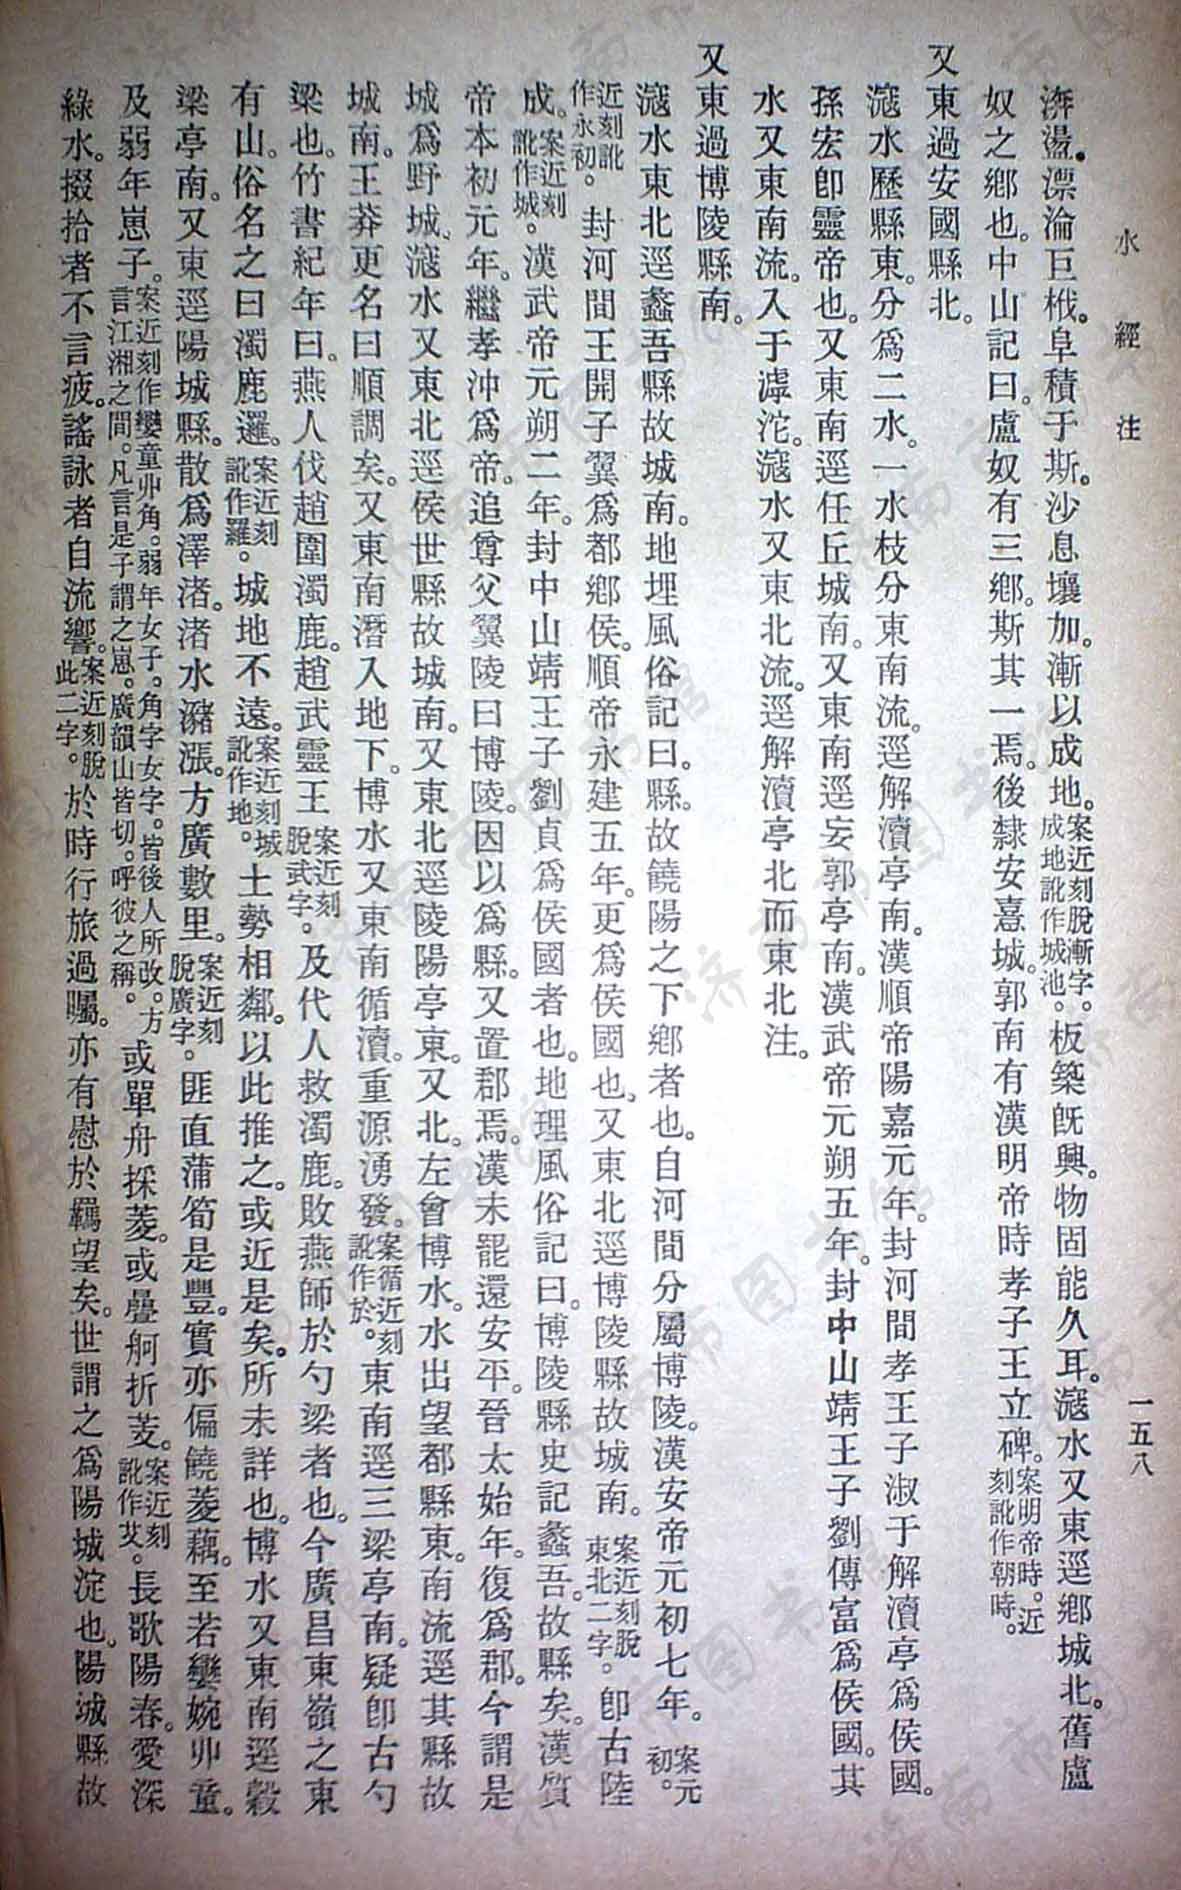 水經注
一五八
渀盪。漂淪巨栰。阜積于斯。沙息壤加。漸以成地。案近刻脫漸字。成地訛作城池。板築旣興。物固能久耳。滱水又東逕鄉城北。舊盧
奴之鄉也。中山記曰。盧奴有三鄉。斯其一焉。後隸安憙城。郭南有漢明帝時孝子王立碑。案明帝時。近刻訛作朝時。
又東過安國縣北。
滱水歷縣東。分爲二水。一水枝分東南流。逕解瀆亭南。漢順帝陽嘉元年。封河間孝王子淑于解瀆亭爲侯國。
孫宏卽靈帝也。又東南逕任丘城南。又東南逕安郭亭南。漢武帝元朔五年。封中山靖王子劉傳富爲侯國。其
水又東南流。入于滹沱。滱水又東北流。逕解瀆亭北而東北注。
又東過博陵縣南。
滱水東北逕蠡吾縣故城南。地埋風俗記曰。縣。故饒陽之下鄉者也。自河間分屬博陵。漢安帝元初七年。案元初。
近刻訛作永初。封河間王開子翼爲都鄉侯。順帝永建五年。更爲侯國也。又東北逕博陵縣故城南。案近刻脫東北二字。卽古陸
成。案近刻訛作城。漢武帝元朔二年。封中山靖王子劉貞爲侯國者也。地理風俗記曰。博陵縣史記蠡吾。故縣矣。漢質
帝本初元年。繼孝沖爲帝。追尊父翼陵曰博陵。因以爲縣。又置郡焉。漢末罷還安平。晉太始年。復爲郡。今謂是
城爲野城。滱水又東北逕侯世縣故城南。又東北逕陵陽亭東。又北。左會博水。水出望都縣東。南流逕其縣故
城南。王莽更名曰順調矣。又東南潛入地下。博水又東南循瀆。重源湧發。案循近刻訛作於。東南逕三梁亭南。疑卽古勺
梁也。竹書紀年曰。燕人伐趙圍濁鹿。趙武靈王案近刻脫武字。及代人救濁鹿。敗燕師於勺梁者也。今廣昌東嶺之東
有山。俗名之曰濁鹿邏。案近刻訛作羅。城地不遠。案近刻城訛作地。土勢相鄰。以此推之。或近是矣。所未詳也。博水又東南逕穀
梁亭南。又東逕陽城縣。散爲澤渚。渚水瀦漲。方廣數里。案近刻脫廣字。匪直蒲筍是豐。實亦偏饒菱藕。至若孌婉丱童。
及弱年崽子。案近刻作孌童丱角。弱年女子。角字女字。皆後人所改。方言江湘之間。凡言是子謂之崽。廣韻山皆切。呼彼之稱。或單舟採菱。或疊舸折芰。案近刻訛作艾。長歌陽春。愛深
綠水。掇拾者不言疲。謠詠者自流響。案近刻脫此二字。於時行旅過矚。亦有慰於羈望矣。世謂之爲陽城淀也。陽城縣故